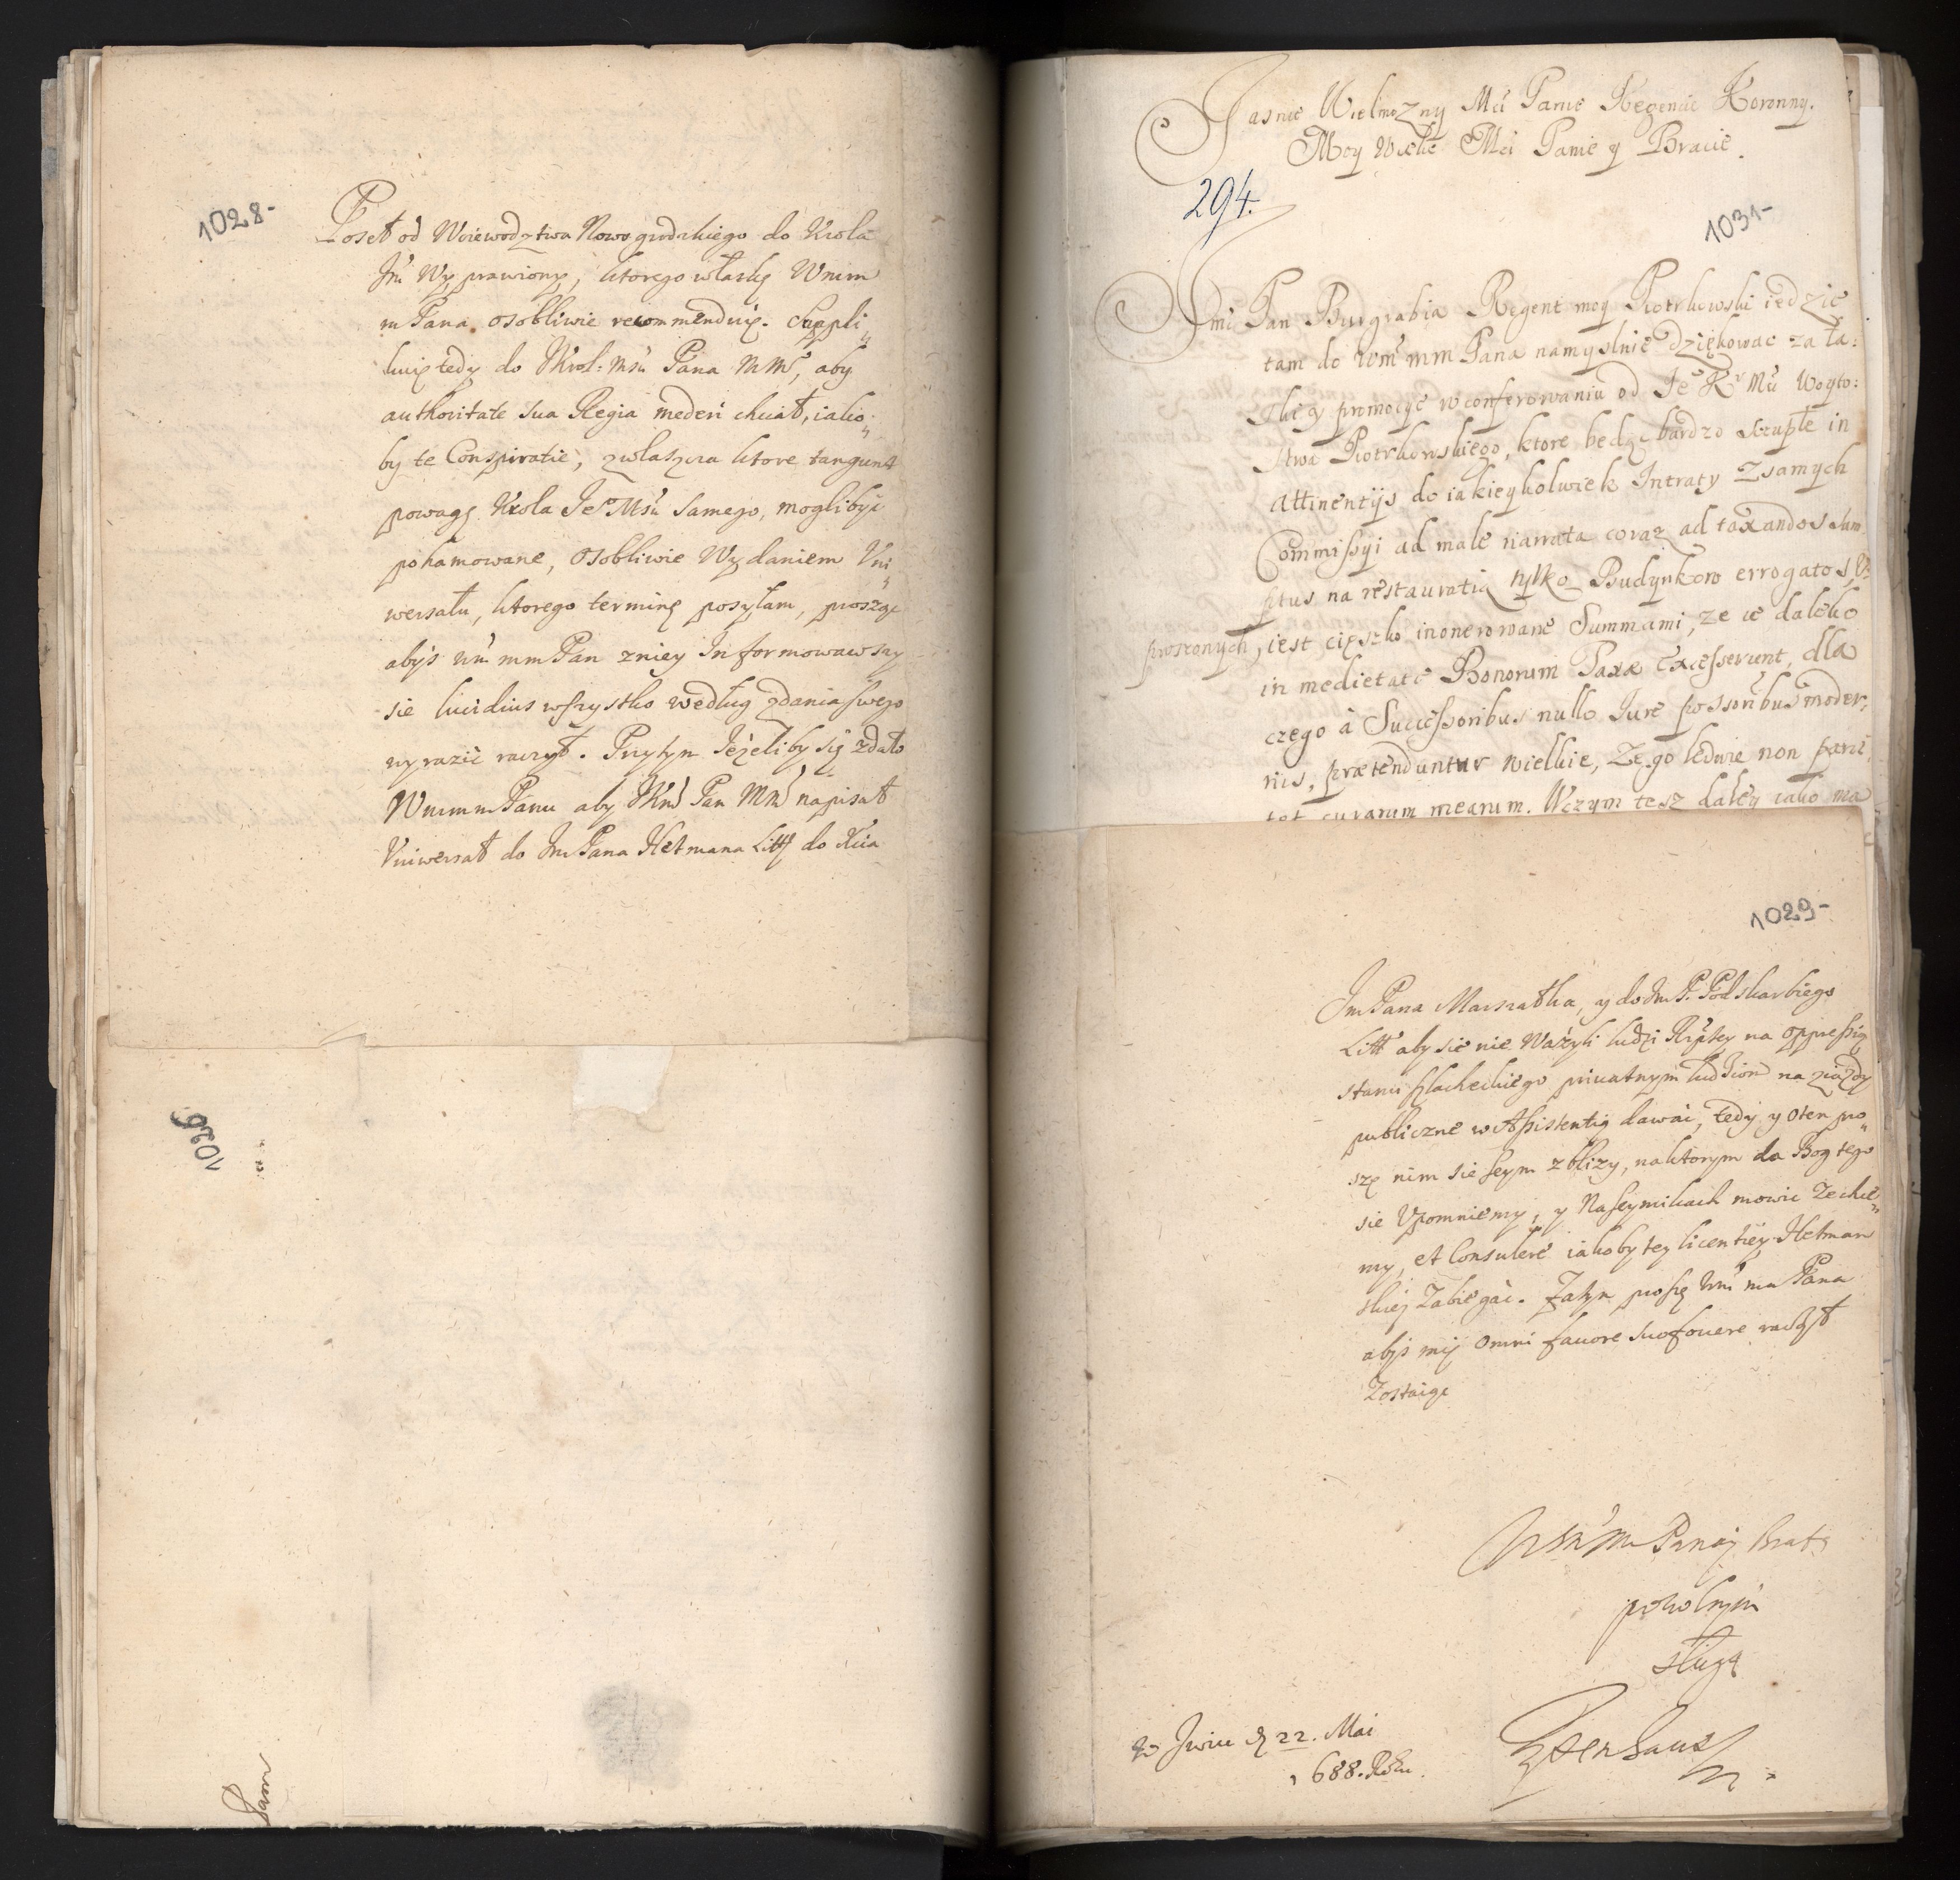 1028-
Poseł od Woiewodztwa Nowogrodzkiego do Krola
Jm Wyprawiony, ktorego w łaskę Wmm
mPana osobliwie recommenduię. Suppli„
kuię tedy do JKrol: Msći Pana MMć, aby
authoritate sua Regia mederi chciał, iako„
by te Conspiratie, zwłaszcza ktore tangunt
powagę Krola Je° Msći samego, mogli być
pohamowane, osobliwie Wydaniem Vni„
wersału, ktorego terminę posyłam, proszę
abyś Wm mmPan zniey Informowawszy
sie lucidius wszystko według zdania swego
wyrazić raczył. Przytym Jeżeliby się zdało
WmmmPanu aby JKM Pan MM napisał
Vniwersał do JmPana Hetmana Litt do Xcia
1026
Pam
Jasnie Wielmozny Mći Panie Regencie Koronny.
Moy Wielce Mći Panie y Bracie.
294.
1031-
Jmć Pan Burgrabia Regent moy Piotrkowski iedzie
tam do Wm mm Pana namyslnie dziękowac za ła:
skę y promocyę w conferowaniu od Je° Kr Mći Woyto:
stwa Piotrkowskiego, ktore będąc bardzo szczupłe in
attinentijs do iakieykolwiek Intraty z samych
Commissyi ad male narrata coraz ad taxandos sum
ptus na restauratią tylko Budynkow errogatos, V:
proszonych, iest cięszko inonerowane Summami, ze ie daleko
in medietate Bonorum Taxæ excesserunt, dla
czego à Successoribus nullo Jure possoribus moder:
nis, prætenduntur wielkie, Ze go ledwie non pani:
tet curarum mearum. W czym tesz daley iako ma
1029-
JmPana Marszałka, y do Jm P. Podskarbiego
Litt aby sie nie Ważyli ludzi Rzptey na oppressią
stanu szlacheckiego priuatnym ludziom na ziazdy
publiczne w Assistentią dawać, tedy y o ten pro„
szę nim sie seym zbliży, na ktorym da Bog tego
sie Vpomniemy, y Na seymikach mowic Zechce„
my, et Consulere iakoby tey licentiey Hetman
skiej Zabiegać. Zatym proszę Wm mm Pana
abyś mię omni fauore suo fouere raczył
Zostaię
Wm m Pana y Brata
powolnym
sługą
W Jwiu d 22. Mai
1688. Rku.